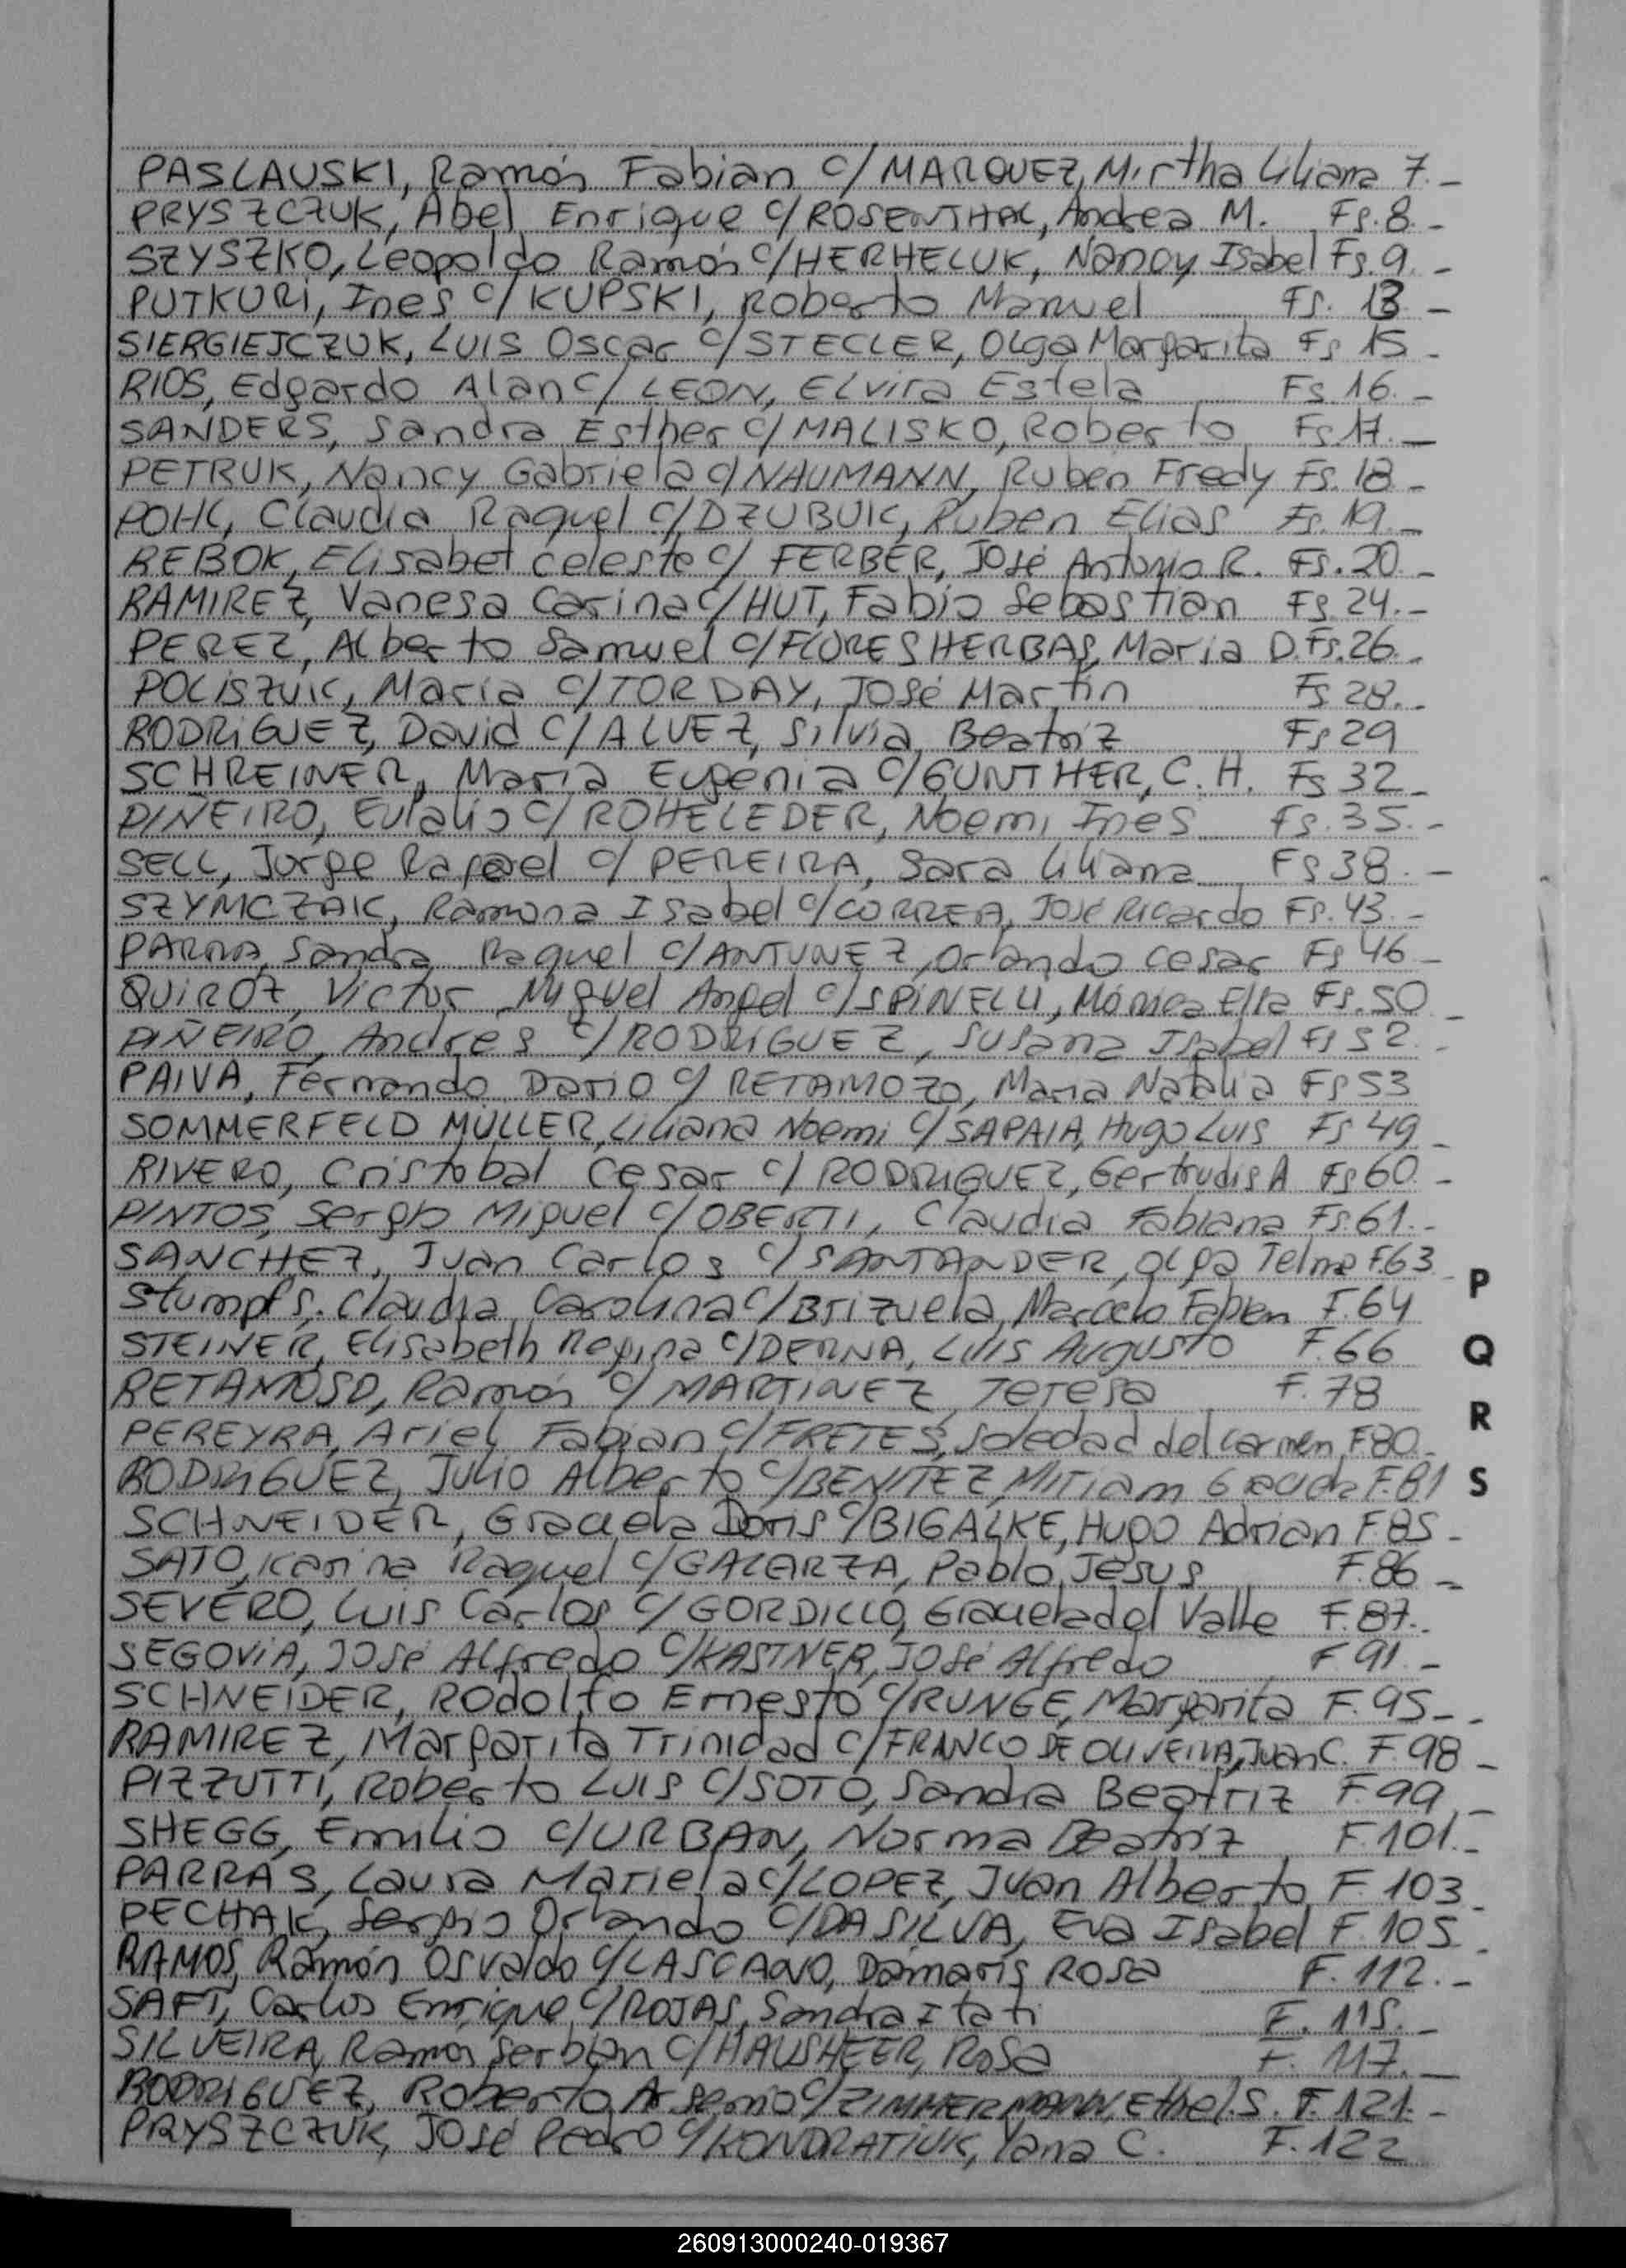 PASLAUSKI, Ramón Fabian c/ MARQUEZ, Mirtha Liliana 7.-
PRYSZCZUK, Abel Enrique c/ ROSENTHAL, Andrea M. Fs. 8.-
SZYSZKO, Leopoldo Ramón c/ HERHELUK, Nancy Isabel Fs. 9. -
PUTKURI, Ines c/ KUPSKI, Roberto Manuel Fs. 13 -
SIERGIEJCZUK, LUIS Oscar c/ STECLER, Olga Margarita Fs 15 -
RIOS, Edgardo Alan c/ LEON, Elvira Estela Fs 16. -
SANDERS, Sandra Esther c/ MALISKO, Roberto Fs 17. -
PETRUK, Nancy Gabriela c/ NAUMANN, Ruben Fredy Fs. 18 -
POHL, Claudia Raquel c/ DZUBUK, Ruben Elias Fs. 19. -
REBOK, Elisabet Celeste c/ FERBER, José Antonio R. Fs. 20 -
RAMIREZ, Vanesa Carina c/ HUT, Fabio Sebastian Fs. 24. -
PEREZ, Alberto Samuel c/ FLORES HERBAS, Maria D. Fs. 26. -
POLISZUK, Maria c/ TORDAY, José Martin Fs 28. -
RODRIGUEZ, David c/ ALVEZ, Silvia Beatriz Fs 29
SCHREINER, Maria Eugenia c/ GUNTHER, C. H. Fs 32 -
PIÑEIRO, Eulalio c/ ROHELEDER, Noemi Ines fs. 35. -
SELL, Jorge Rafael c/ PEREIRA, Sara Liliana Fs 38. -
SZYMCZAK, Ramona Isabel c/ CORREA, José Ricardo Fs. 43. -
PARRA, Sandra Raquel c/ ANTUNEZ, Orlando Cesar Fs 46 -
QUIROZ, Victor Miguel Angel c/ SPINELLI, Mónica Elsa Fs. 50 -
PIÑEIRO, Andres c/ RODRIGUEZ, Susana Isabel Fs 52. -
PAIVA, Fernando Dario c/ RETAMOZO, Maria Natalia Fs 53
SOMMERFELD MÜLLER, Liliana Noemi c/ SAPAIA, Hugo Luis Fs 49 -
RIVERO, Cristobal Cesar c/ RODRIGUEZ, Gertrudis A Fs 60. -
PINTOS, Sergio Miguel c/ OBERTI, Claudia Fabiana Fs. 61. -
SANCHEZ, Juan Carlos c/ SANTANDER, Olga Telma F.63
Stumpfs, Claudia Carolina c/ Brizuela, Marcelo Fabien F. 64
STEINER, Elisabeth Regina c/ DERNA, Luis Augusto F. 66
RETAMOSO, Ramón c/ MARTINEZ, Teresa F. 78
PEREYRA, Ariel Fabian c/ FRETES, Soledad del carmen F.80 -
RODRIGUEZ, Julio Alberto c/ BENITEZ, Miriam F.81
SCHNEIDER, Graciela Doris c/ BIGALKE, Hugo Adrian F.85 -
SATO, Karina Raquel c/ GALARZA, Pablo Jesus F.86 -
SEVERO, Luis Carlos c/ GORDILLO, Graciela del Valle F.87. -
SEGOVIA, José Alfredo c/ KASTNER, José Alfredo F 91. -
SCHNEIDER, Rodolfo Ernesto c/ RUNGE, Margarita F. 95 - -
RAMIREZ, Margarita Trinidad c/ FRANCO DE OLIVEIRA, Juan C. F. 98 -
PIZZUTTI, Roberto Luis c/ SOTO, Sandra Beatriz F. 99 -
SHEGG, Emilio c/ URBAN, Norma Beatriz F. 101. -
PARRAS, Laura Mariela c/ LOPEZ, Juan Alberto F. 103 -
PECHAK, Sergio Orlando c/ DA SILVA, Eva Isabel F. 105 -
RAMOS, Ramón Osvaldo c/ LASCANO, Damaris Rosa F. 112. -
SAFT, Carlos Enrique c/ ROJAS, Sandra Itati F. 115. -
SILVEIRA, Ramón c/ HAUSHEER, Rosa F. 117. -
RODRIGUEZ, Roberto Arsenio c/ ZIMMERMANN, Ethel S. F. 121. -
PRYSZCZUK, José Pedro c/ KONDRATIUK, Yana C. F. 122
P
Q
R
S
260913000240-019367